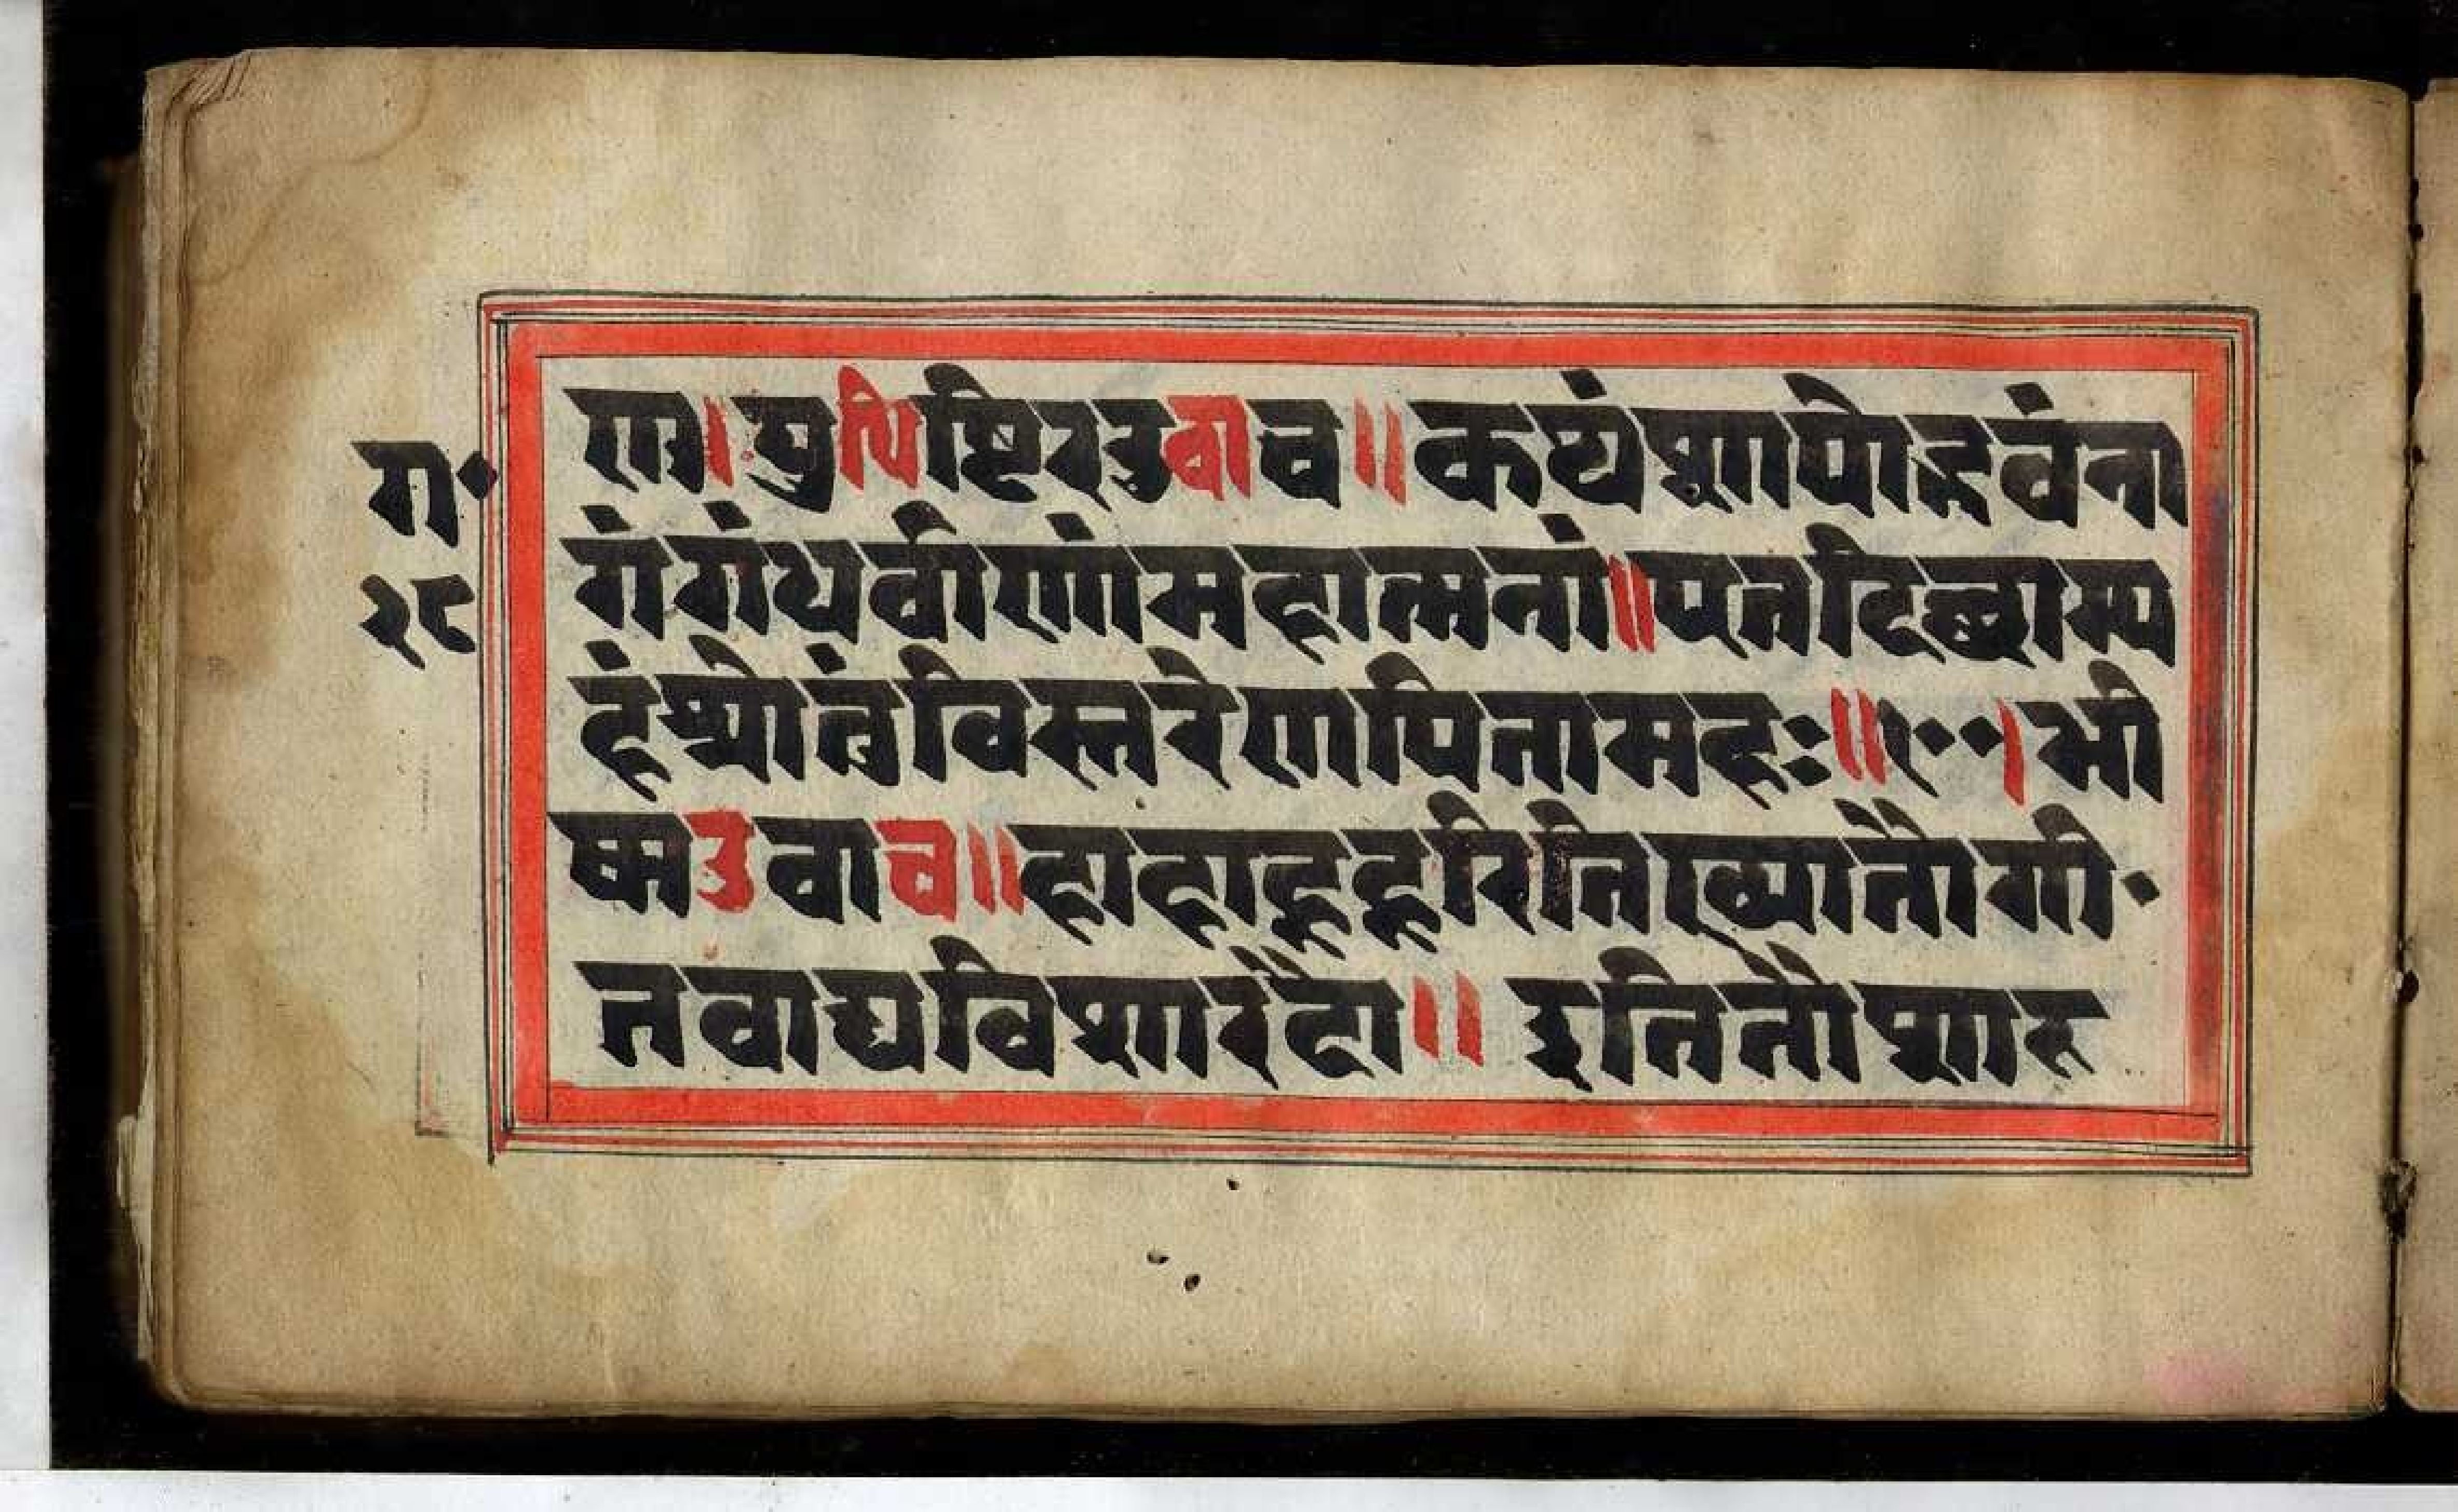 ण।युधिष्टिरउवाच॥कथंशापोद्भवंना
ग॰
गंगंधर्वाणांमहात्मनां॥एतदिच्छाम्य
२८
हंश्रोतुंविस्तरेणपितामहः॥१००।भी
ष्मउवाच॥हाहाहूहूरितिख्यातौगी॰
तवाद्यविशारदौ॥इतितौशार